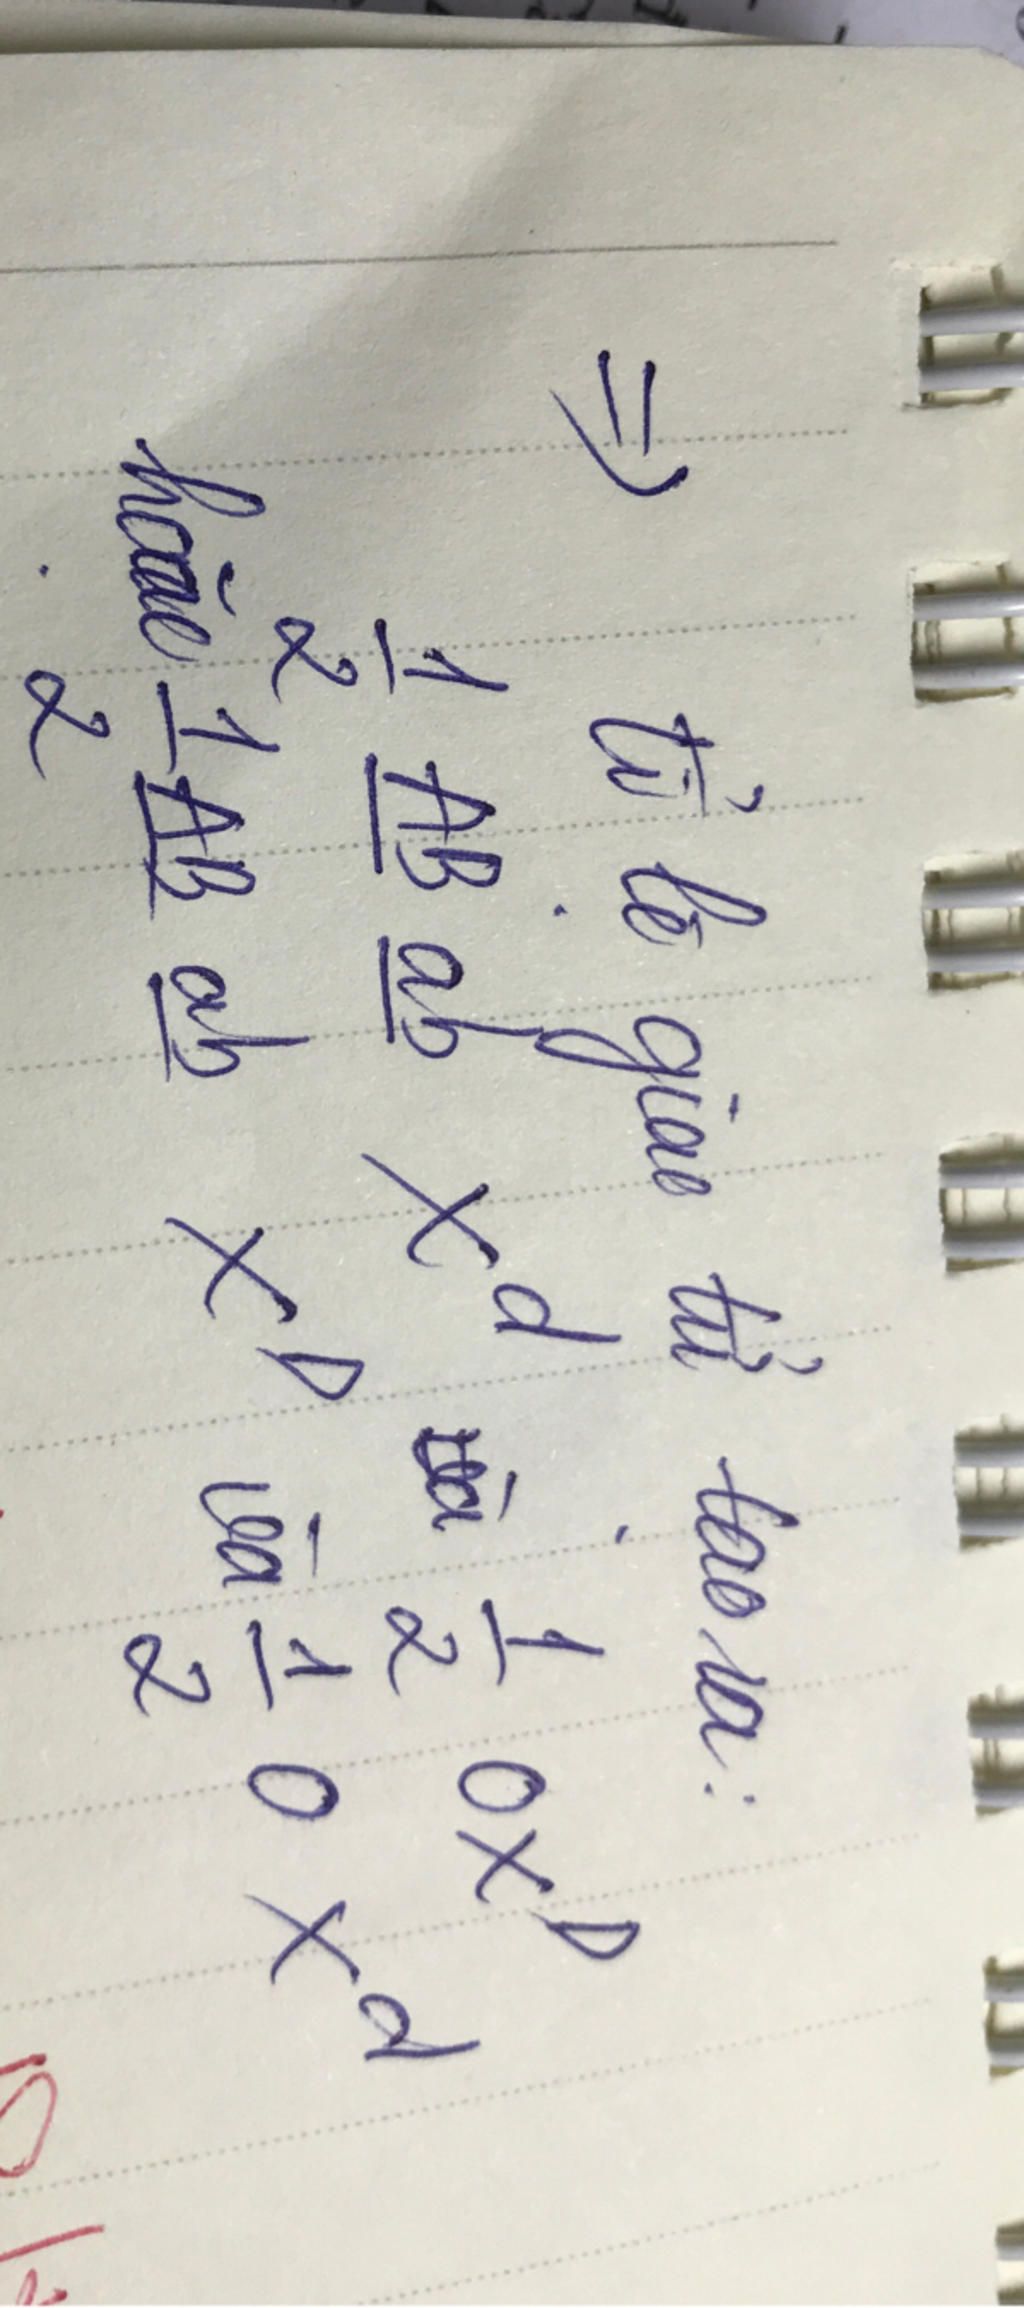 => tỉ lệ giao tử tạo ra:
1/2 AB ab X^d và 1/2 O X^D
hoặc 1/2 AB ab X^D và 1/2 O X^d